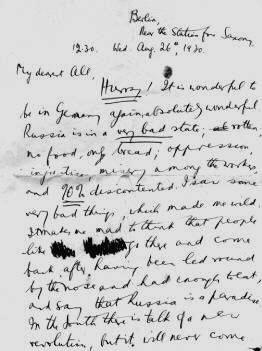 Berlin,
Near the Station for Saxony.
12.30. Wed. Aug. 26th, 1930.
My dearest All,
Hurray! It is wonderful to
be in Germany again, absolutely wonderful
Russia is in a very bad state, rotten,
no food, only bread; oppression,
injustice, misery among the workers,
and 90% discontented. I saw some
very bad things, which made me mad
to think that people
like go there and come
back, after having been led round
by the nose and had enough to eat,
and say that Russia is a paradise.
In the South there is talk of a new
revolution, but it will never come